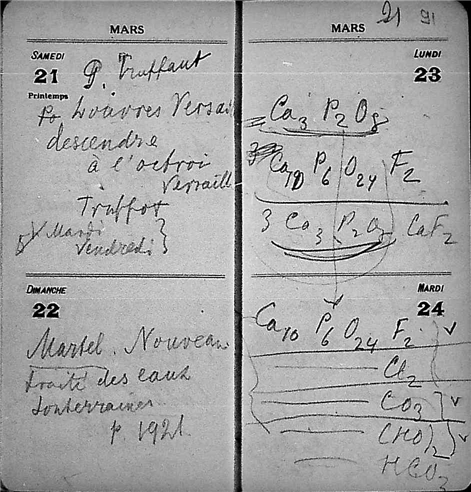 MARS
SAMEDI
21
Printemps
P. Truffaut
Louvres Versail
descendre
à l'octroi
Versaill
Truffot
Mardi
Vendredi
DIMANCHE
22
Martel. Nouveau
traité des eaux
souterraines
p. 1921
21 91
MARS
LUNDI
23
Ca3 P2 O8
Ca10 P6 O24 F2
3 Ca3 P2 O8 CaF2
MARDI
24
Ca10 P6 O24 F2
Cl2
CO3
(HO)2
HCO3